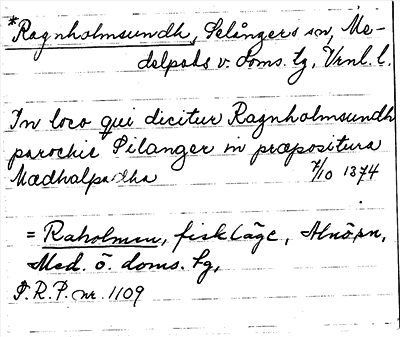 *Ragnholmsundh, Selångers sn, Me-
delpads v. doms. tg, Vrnl. l.
In loco qui dicitur Ragnholmsundh
parochie Silanger in præpositura
Mædhalpadha 7/10 1374
= Raholmen, fiskläge, Alnö sn,
Med. ö. doms. tg,
S.R.P. nr. 1109